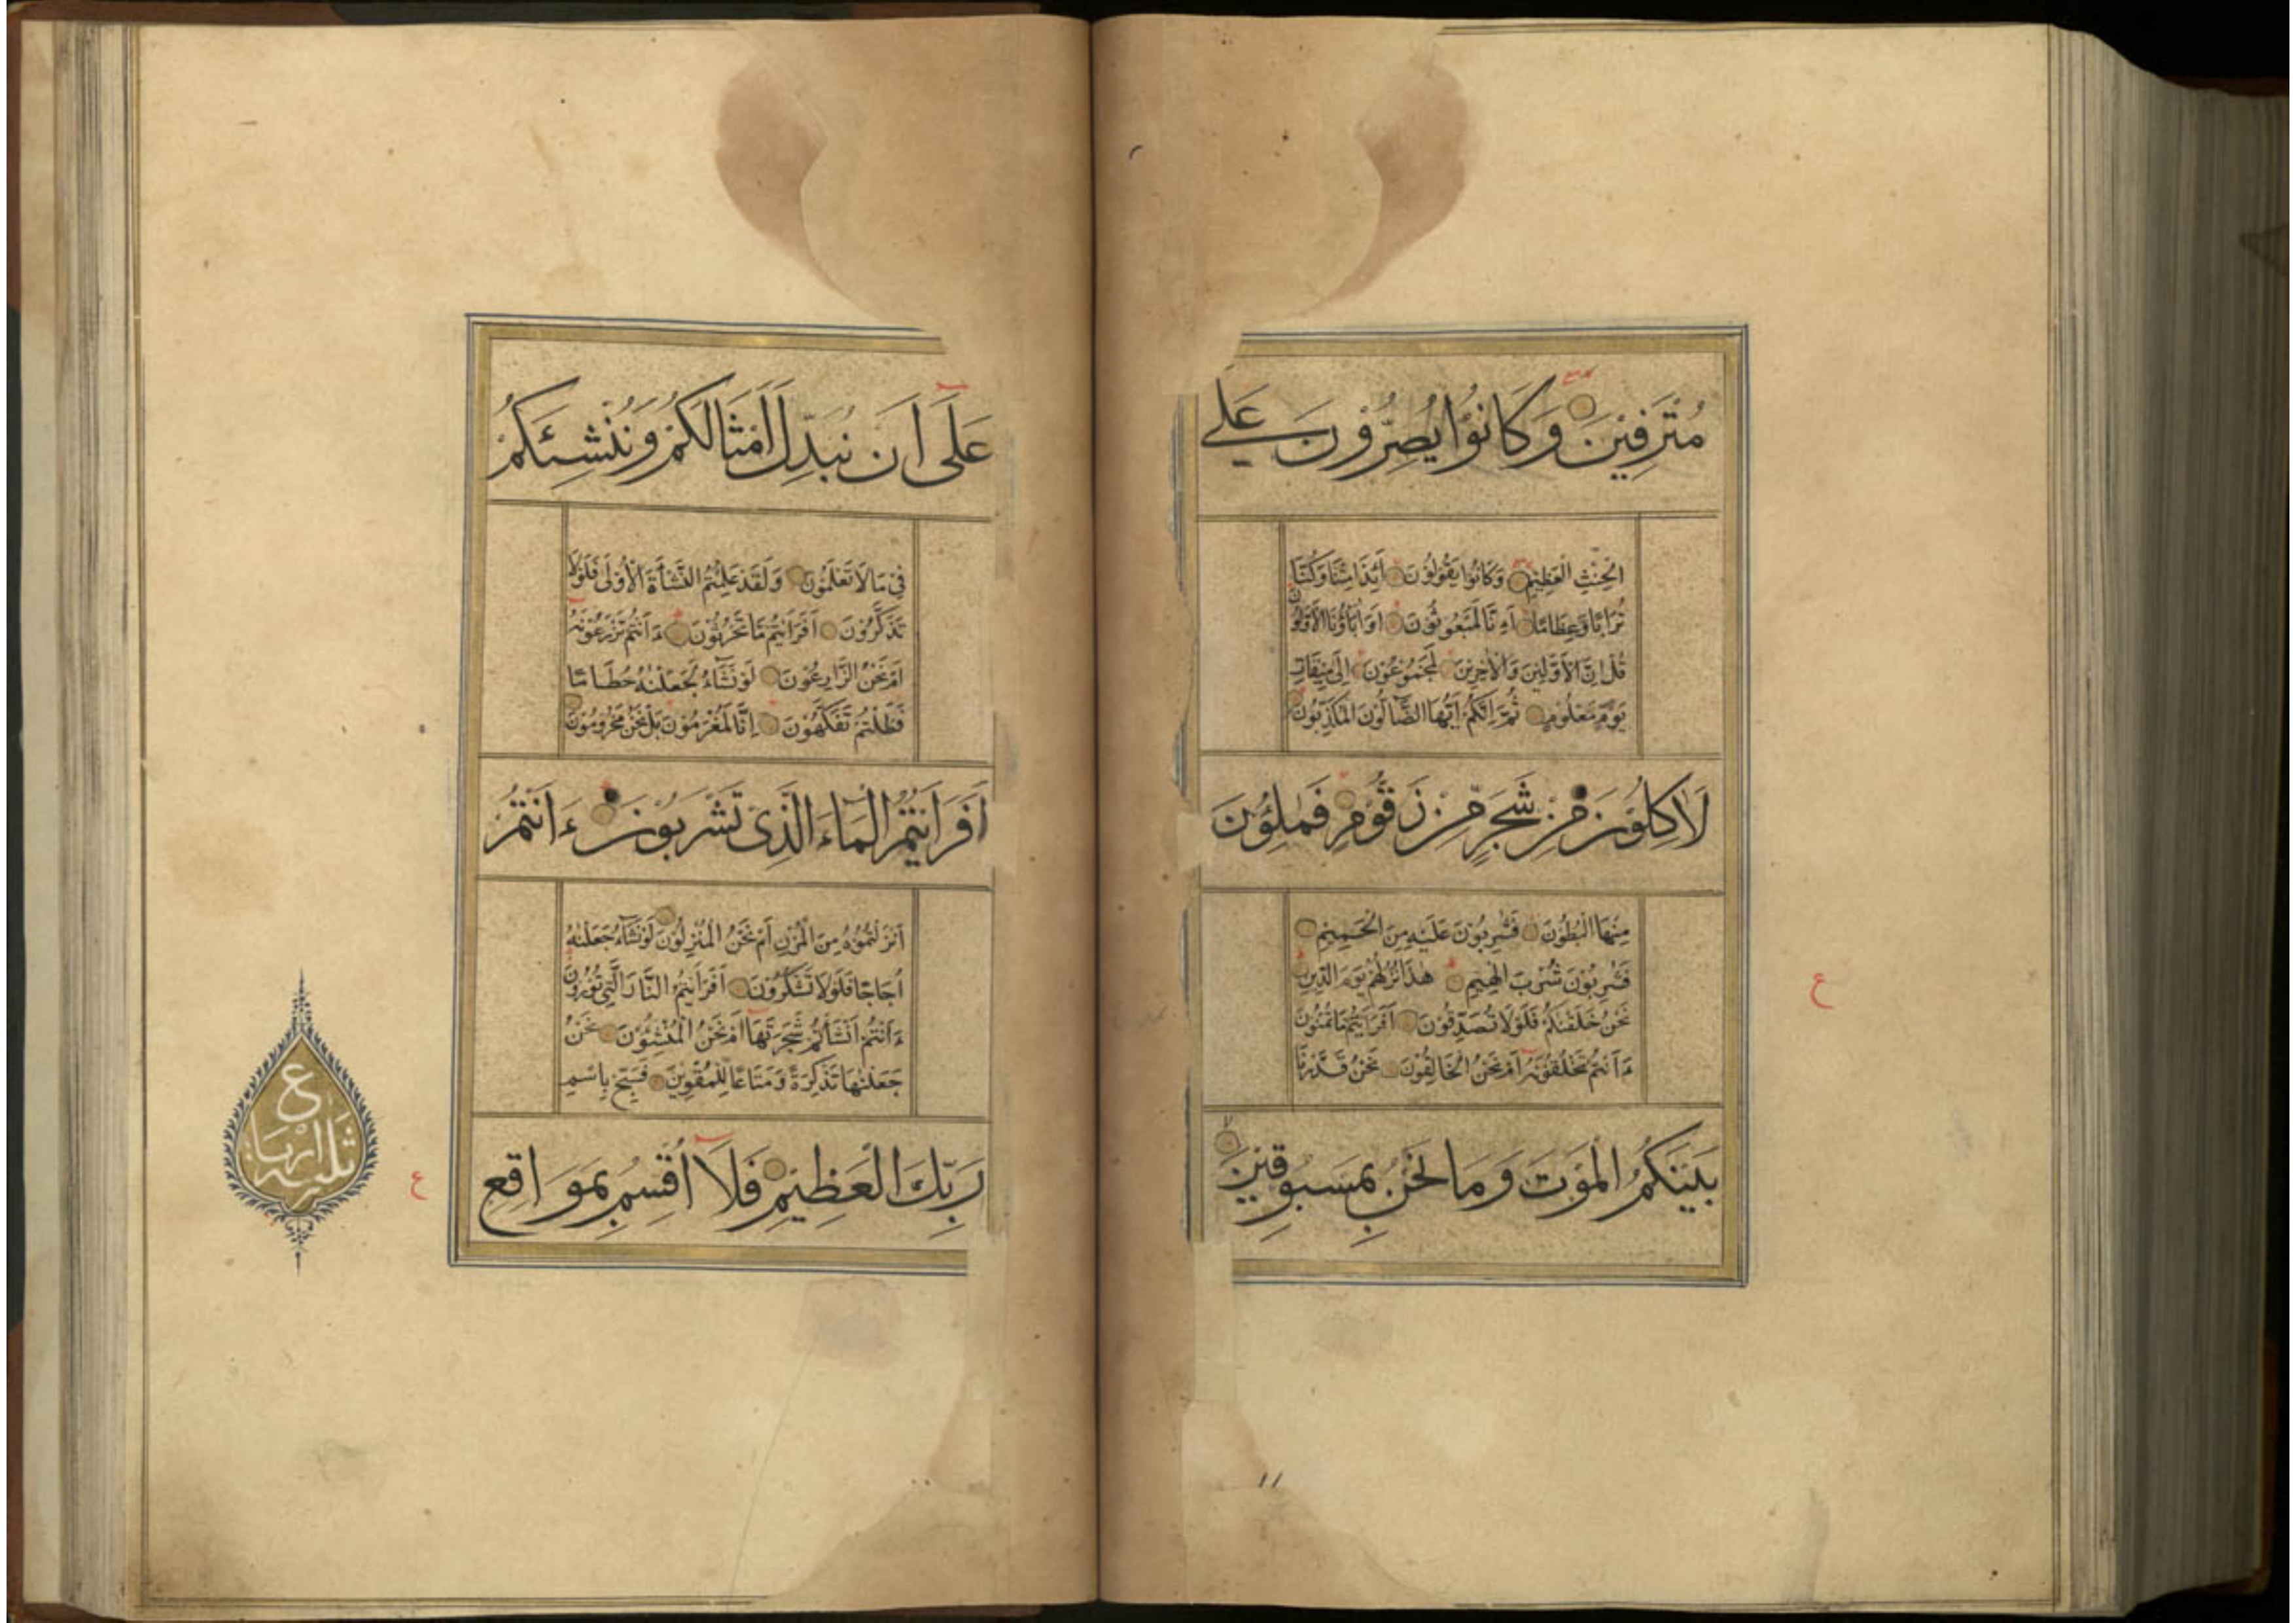 مُتْرَفِيْنَ وَكَانُوْا يُصِرُّوْنَ عَلَى
الْحِنْثِ الْعَظِيْمِ وَكَانُوْا يَقُوْلُوْنَ اَئِذَا مِتْنَا وَكُنَّا
تُرَابًا وَعِظَامًا اَءِنَّا لَمَبْعُوْثُوْنَ اَوَاٰبَاؤُنَا الْاَوَّلُوْنَ
قُلْ اِنَّ الْاَوَّلِيْنَ وَالْاٰخِرِيْنَ لَمَجْمُوْعُوْنَ اِلٰى مِيْقَاتِ
يَوْمٍ مَعْلُوْمٍ ثُمَّ اِنَّكُمْ اَيُّهَا الضَّآلُّوْنَ الْمُكَذِّبُوْنَ
لَاٰكِلُوْنَ مِنْ شَجَرٍ مِّنْ زَقُّوْمٍ فَمٰلِؤُنَ
مِنْهَا الْبُطُوْنَ فَشٰرِبُوْنَ عَلَيْهِ مِنَ الْحَمِيْمِ
فَشٰرِبُوْنَ شُرْبَ الْهِيْمِ هٰذَا نُزُلُهُمْ يَوْمَ الدِّيْنِ
نَحْنُ خَلَقْنٰكُمْ فَلَوْلَا تُصَدِّقُوْنَ اَفَرَاَيْتُمْ مَا تُمْنُوْنَ
ءَاَنْتُمْ تَخْلُقُوْنَهُ اَمْ نَحْنُ الْخَالِقُوْنَ نَحْنُ قَدَّرْنَا
بَيْنَكُمُ الْمَوْتَ وَمَا نَحْنُ بِمَسْبُوْقِيْنَ
ع
عَلٰى اَنْ نُبَدِّلَ اَمْثَالَكُمْ وَنُنْشِئَكُمْ
فِيْ مَا لَا تَعْلَمُوْنَ وَلَقَدْ عَلِمْتُمُ النَّشْاَةَ الْاُوْلٰى فَلَوْلَا
تَذَكَّرُوْنَ اَفَرَاَيْتُمْ مَا تَحْرُثُوْنَ ءَاَنْتُمْ تَزْرَعُوْنَهُ
اَمْ نَحْنُ الزَّارِعُوْنَ لَوْ نَشَآءُ لَجَعَلْنٰهُ حُطَامًا
فَظَلْتُمْ تَفَكَّهُوْنَ اِنَّا لَمُغْرَمُوْنَ بَلْ نَحْنُ مَحْرُوْمُوْنَ
اَفَرَاَيْتُمُ الْمَاءَ الَّذِيْ تَشْرَبُوْنَ ءَاَنْتُمْ
اَنْزَلْتُمُوْهُ مِنَ الْمُزْنِ اَمْ نَحْنُ الْمُنْزِلُوْنَ لَوْ نَشَآءُ جَعَلْنٰهُ
اُجَاجًا فَلَوْلَا تَشْكُرُوْنَ اَفَرَاَيْتُمُ النَّارَ الَّتِيْ تُوْرُوْنَ
ءَاَنْتُمْ اَنْشَأْتُمْ شَجَرَتَهَا اَمْ نَحْنُ الْمُنْشِؤُنَ نَحْنُ
جَعَلْنٰهَا تَذْكِرَةً وَمَتَاعًا لِّلْمُقْوِيْنَ فَسَبِّحْ بِاسْمِ
رَبِّكَ الْعَظِيْمِ فَلَآ اُقْسِمُ بِمَوَاقِعِ
ع
ثلثه ارباع